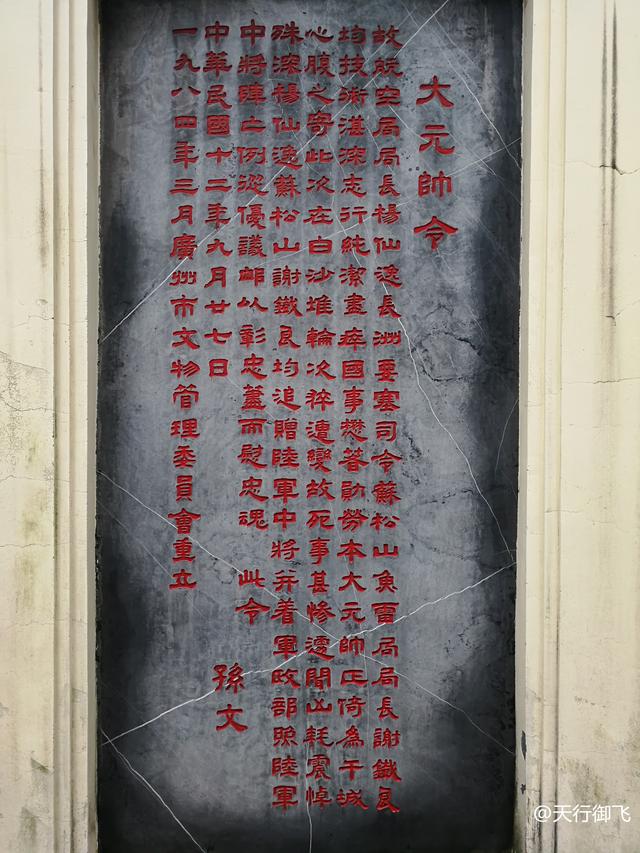 大元帥令
故航空局局長楊仙逸長洲要塞司令蘇松山魚雷局局長謝鐵良
均技術湛深志行純潔盡瘁國事懋著勛勞本大元帥正倚為干城
心腹之寄此次在白沙堆輪次猝遭變故死事甚慘遽聞凶耗震悼
殊深楊仙逸蘇松山謝鐵良均追贈陸軍中將并着軍政部照陸軍
中將陣亡例從優議卹以彰忠藎而慰忠魂 此令
孫文
中華民國十二年九月廿七日
一九八四年三月廣州市文物管理委員會重立
@天行御飞